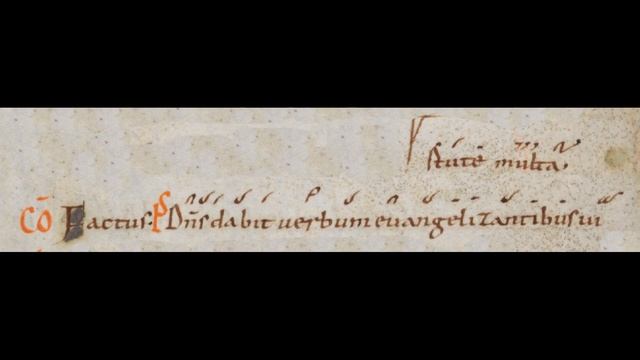 stute multa
CO Factus. PS Dns dabit verbum evangelizantibus vi